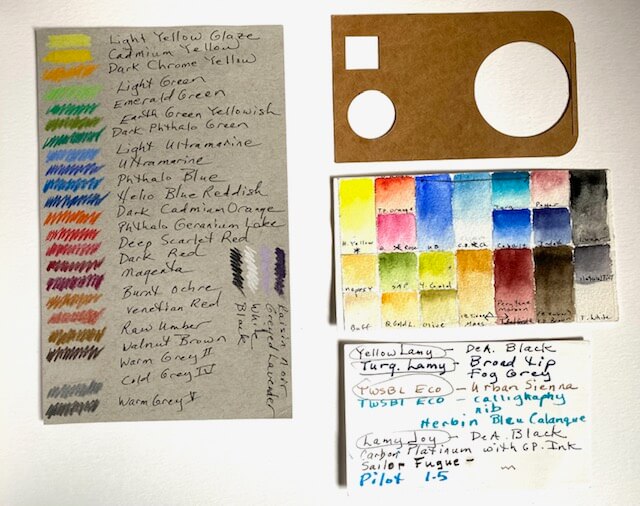 Light Yellow Glaze
Cadmium Yellow
Dark Chrome Yellow
Light Green
Emerald Green
Earth Green Yellowish
Dark Phthalo Green
Light Ultramarine
Ultramarine
Phthalo Blue
Helio Blue Reddish
Dark Cadmium Orange
Phthalo Geranium Lake
Deep Scarlet Red
Dark Red
Magenta
Burnt Ochre
Venetian Red
Raw Umber
Walnut Brown
Warm Grey II
Cold Grey IV
Warm Grey V
Black
White
Greyed Lavender
Raisin Noir
H. Yellow
Cobalt
Olive
Buff
Yellow Lamy - DeA. Black
Turq. Lamy - Broad tip
Fog Grey
TWSBI ECO - Urban Sienna
TWSBI ECO - calligraphy
nib
Herbin Bleu Calanque
Lamy Joy - DeA. Black
Carbon Platinum with GP. Ink
Sailor Fugue -
Pilot 1.5